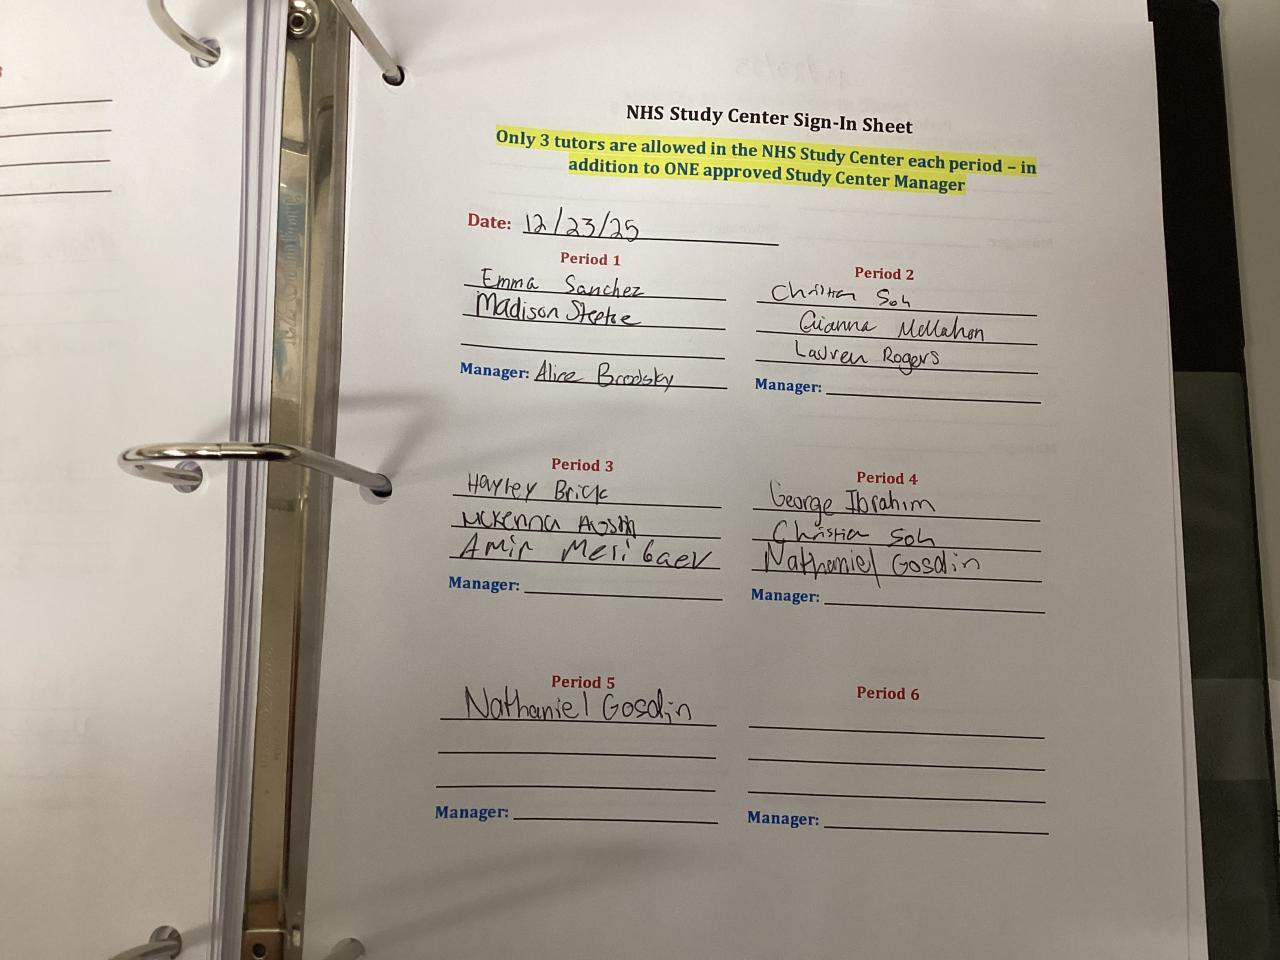 NHS Study Center Sign-In Sheet
Only 3 tutors are allowed in the NHS Study Center each period – in
addition to ONE approved Study Center Manager
Date: 12/23/25
Period 1
Emma Sanchez
Madison Steptoe
Manager: Alice Brodsky
Period 2
Christian Soh
Gianna McMahon
Lauren Rogers
Manager:
Period 3
Hayley Brick
McKenna Austin
Amir Merigaev
Manager:
Period 4
George Ibrahim
Christian Soh
Nathaniel Gosdin
Manager:
Period 5
Nathaniel Gosdin
Manager:
Period 6
Manager: